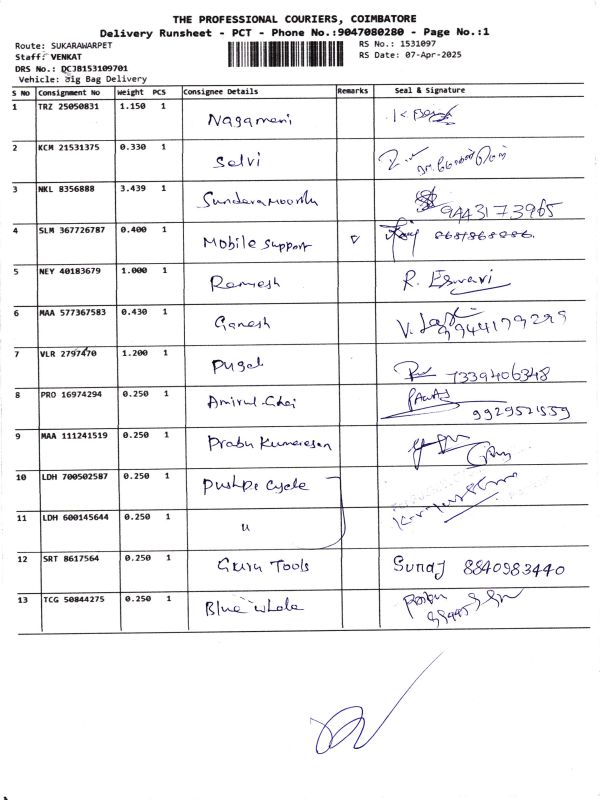 THE PROFESSIONAL COURIERS, COIMBATORE
Delivery Runsheet - PCT - Phone No.:9047080280 - Page No.:1
Route: SUKARAWARPET
RS No.: 1531097
Staff: VENKAT
RS Date: 07-Apr-2025
DRS No.: DCJB153109701
Vehicle: Big Bag Delivery
S No Consignment No Weight PCS Consignee Details Remarks Seal & Signature
1 TRZ 25050831 1.150 1 Nagamani
2 KCM 21531375 0.330 1 Selvi
3 NKL 8356888 3.439 1 Sundaramoorthy 9443173965
4 SLM 367726787 0.400 1 Mobile Support
5 NEY 40183679 1.000 1 Ramesh R. Eswari
6 MAA 577367583 0.430 1 Ganesh
7 VLR 2797470 1.200 1 Pugal 7339406348
8 PRO 16974294 0.250 1 9929521559
9 MAA 111241519 0.250 1 Prabu Kumaresan
10 LDH 700502587 0.250 1 Pushpa Cycle
11 LDH 600145644 0.250 1 "
12 SRT 8617564 0.250 1 Guru Tools Suraj 8840983440
13 TCG 50844275 0.250 1 Blue whale